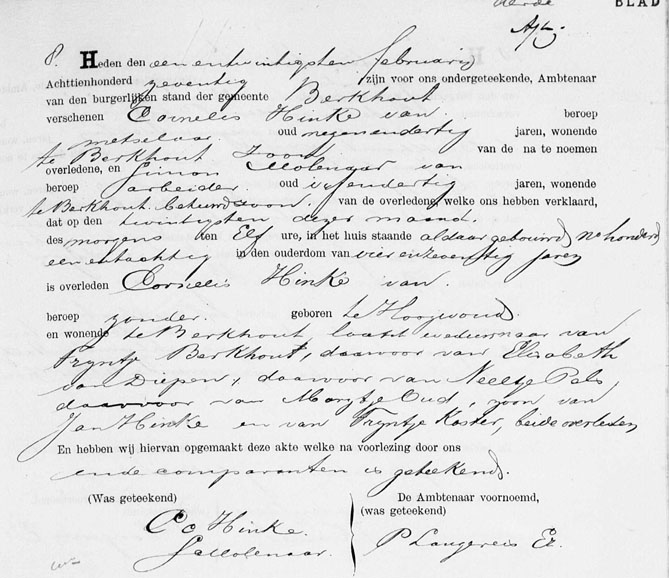 derde BLAD
Afs.
8. Heden den een en twintigsten februarij
Achttienhonderd zeventig zijn voor ons ondergeteekende, Ambtenaar
van den burgerlijken stand der gemeente Berkhout
verschenen Cornelis Hinke van beroep
metselaar. oud negenendertig jaren, wonende
te Berkhout zoon van de na te noemen
overledene, en Simon Molenaar van
beroep arbeider. oud jaren, wonende
te Berkhout behuwdzoon. van de overledene, welke ons hebben verklaard,
dat op den twintigsten dezer maand
des morgens ten Elf ure, in het huis staande aldaar gebouwd No honderd
een entachtig in den ouderdom van vier en zeventig jaren
is overleden Cornelis Hinke van.
beroep zonder. geboren te Hoogwoud
en wonende te Berkhout, laatst weduwnaar van
Tryntje Berkhout, daarvoor van Elisabeth
van Diepen, daarvoor van Neeltje Pals
daarvoor van Marytje Oud, zoon van
Jan Hinke en van Tryntje Koster, beide overleden
En hebben wij hiervan opgemaakt deze akte welke na voorlezing door ons
ende comparanten is geteekend.
(Was geteekend) De Ambtenaar voornoemd,
(was geteekend)
Cs Hinke.
S. Molenaar. P Langereis Ez.